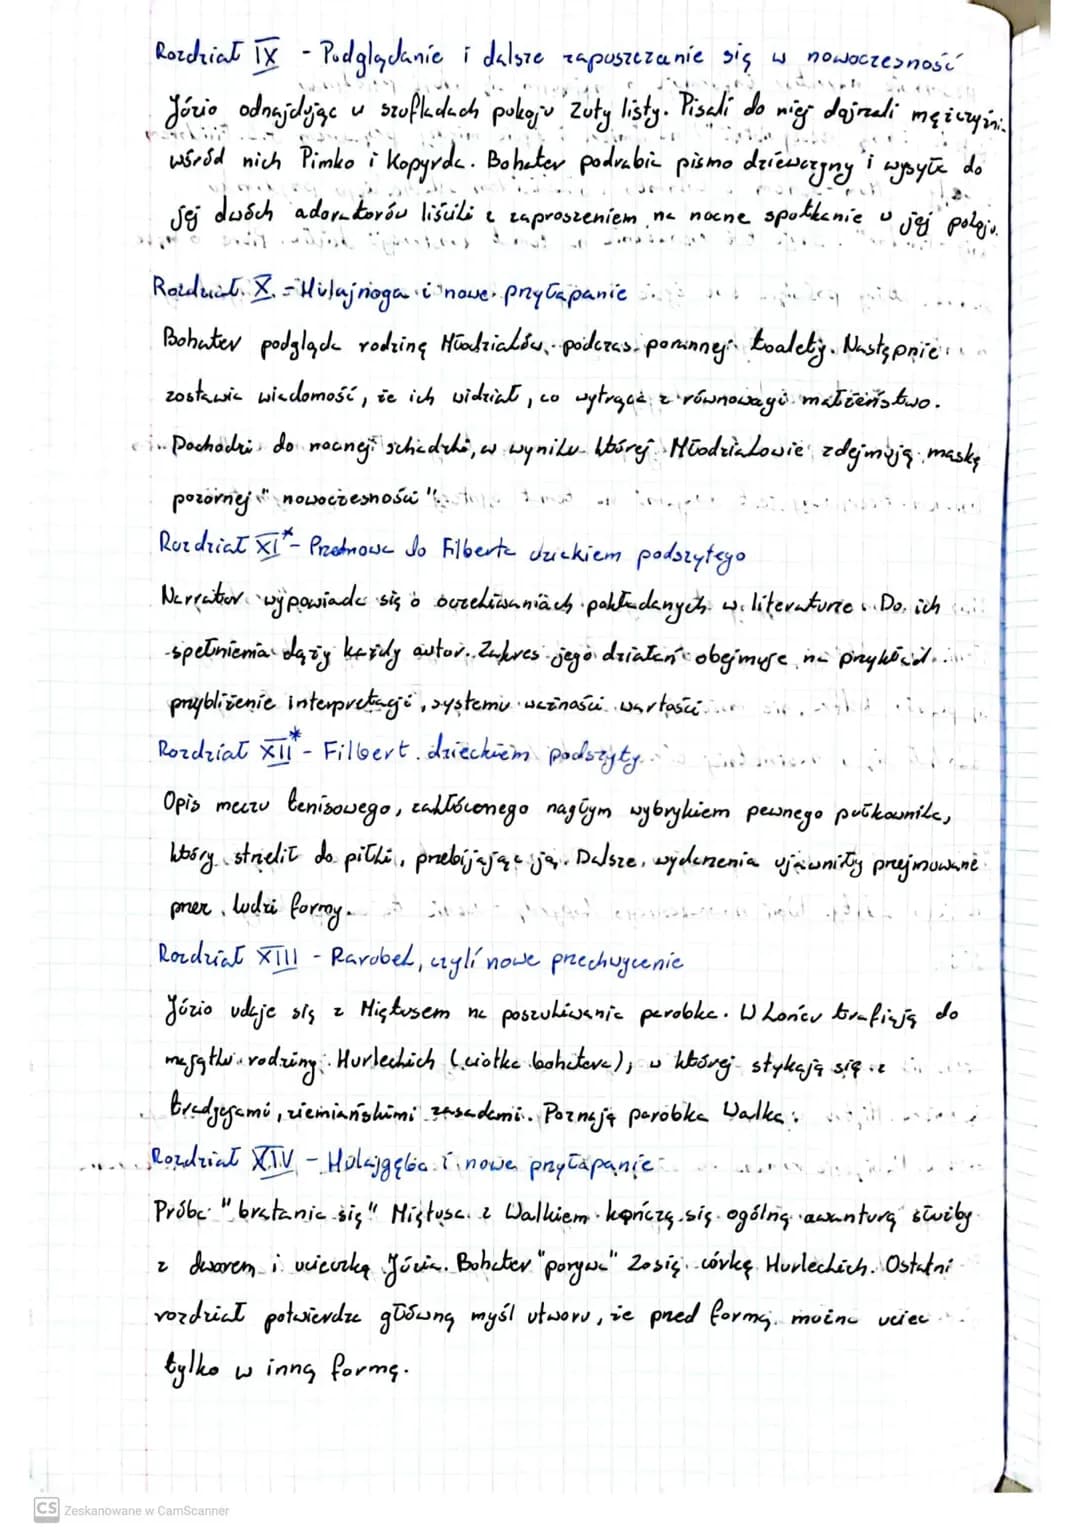 Rozdział IX - Podglądanie i dalsze zapuszczanie się w nowoczesność
Józio odnajdując w szufladach pokoju Zuty listy. Pisali do niej dojrzali mężczyźni.
wśród nich Pimko i Kopyrda. Bohater podrabia pismo dziewczyny i wysyła do
jej dwóch adoratorów liściki z zaproszeniem na nocne spotkanie w jej pokoju.
Rozdział X. - Hulajnoga i nowe przyłapanie
Bohater podgląda rodzinę Młodziaków podczas porannej toalety. Następnie
zostawia wiadomość, że ich widział, co wytrąca z równowagi małżeństwo.
Dochodzi do nocnej schadzki, w wyniku której Młodziakowie zdejmują maskę
pozornej "nowoczesności".
Rozdział XI* - Przedmowa do Filberta dzieckiem podszytego
Narrator wypowiada się o oczekiwaniach pokładanych w literaturze. Do ich
spełnienia dąży każdy autor. Zakres jego działań obejmuje na przykład
przybliżenie interpretacji, systemu ważności wartości
Rozdział XII* - Filbert dzieckiem podszyty
Opis meczu tenisowego, zakłóconego nagłym wybrykiem pewnego pułkownika,
który strzelił do piłki, przebijając ją. Dalsze wydarzenia ujawniły przejmowane
przez ludzi formy.
Rozdział XIII - Parobek, czyli nowe przechwycenie
Józio udaje się z Miętusem na poszukiwania parobka. W końcu trafiają do
majątku rodziny Hurleckich (ciotka bohatera), w której stykają się z
tradycjami, ziemiańskimi zasadami. Poznają parobka Walka.
Rozdział XIV - Hulajgęba i nowe przyłapanie
Próba "bratania się" Miętusa z Walkiem kończą się ogólną awanturą służby
z dworem i ucieczką Józia. Bohater "porywa" Zosię córkę Hurleckich. Ostatni
rozdział potwierdza główną myśl utworu, że przed formą można uciec
tylko w inną formę.
CS Zeskanowane w CamScanner